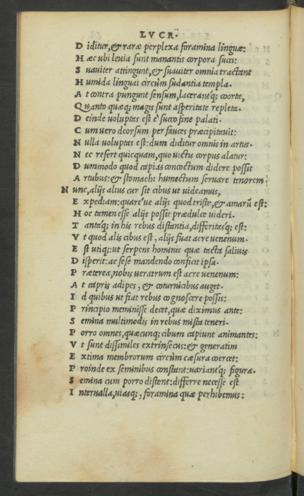 LVCR.
D iditur, & raræ perplexa foramina linguæ:
H æc ubi leuia sunt manantis corpora succi:
S uauiter attingunt, & suauiter omnia tractant
H umida linguai circum sudantia templa.
A t contra pungunt sensum, lacerantq; coorta,
Q uanto quæq; magis sunt asperitate repleta.
D einde uoluptas est e succo fine palati.
C um uero deorsum per fauces præcipitauit:
N ulla uoluptas est: dum diditur omnis in artus.
N ec refert quicquam, quo uictu corpus alatur:
D ummodo quod capias concoctum didere possis
A rtubus: & stomachi humectum seruare tenorem.
N unc, alijs alius cur sit cibus ut uideamus,
E xpediam: quare'ue alijs quod triste, & amarum est:
H oc tamen esse alijs possit prædulce uideri.
T antaq; in his rebus distantia, differitasq; est:
V t quod alis cibus est, alijs fiat acre uenenum.
E st utiq; ut serpens hominis quæ tacta saliuis
D isperit: ac sese mandendo conficit ipsa.
P ræterea, nobis ueratrum est acre uenenum:
A t capris adipes, & coturnicibus auget.
I d quibus ut fiat rebus cognoscere possis:
P rincipio meminisse decet, quæ diximus ante:
S emina multimodis in rebus mista teneri.
P orro omnes, quæcunq; cibum capiunt animantes:
V t sunt dissimiles extrinsecus: & generatim
E xtima membrorum circum cæsura coercet:
P roinde ex seminibus constant: uariantq; figuræ.
S emina cum porro distent: differre necesse est
I nterualla, uiasq;, foramina quæ perhibemus: